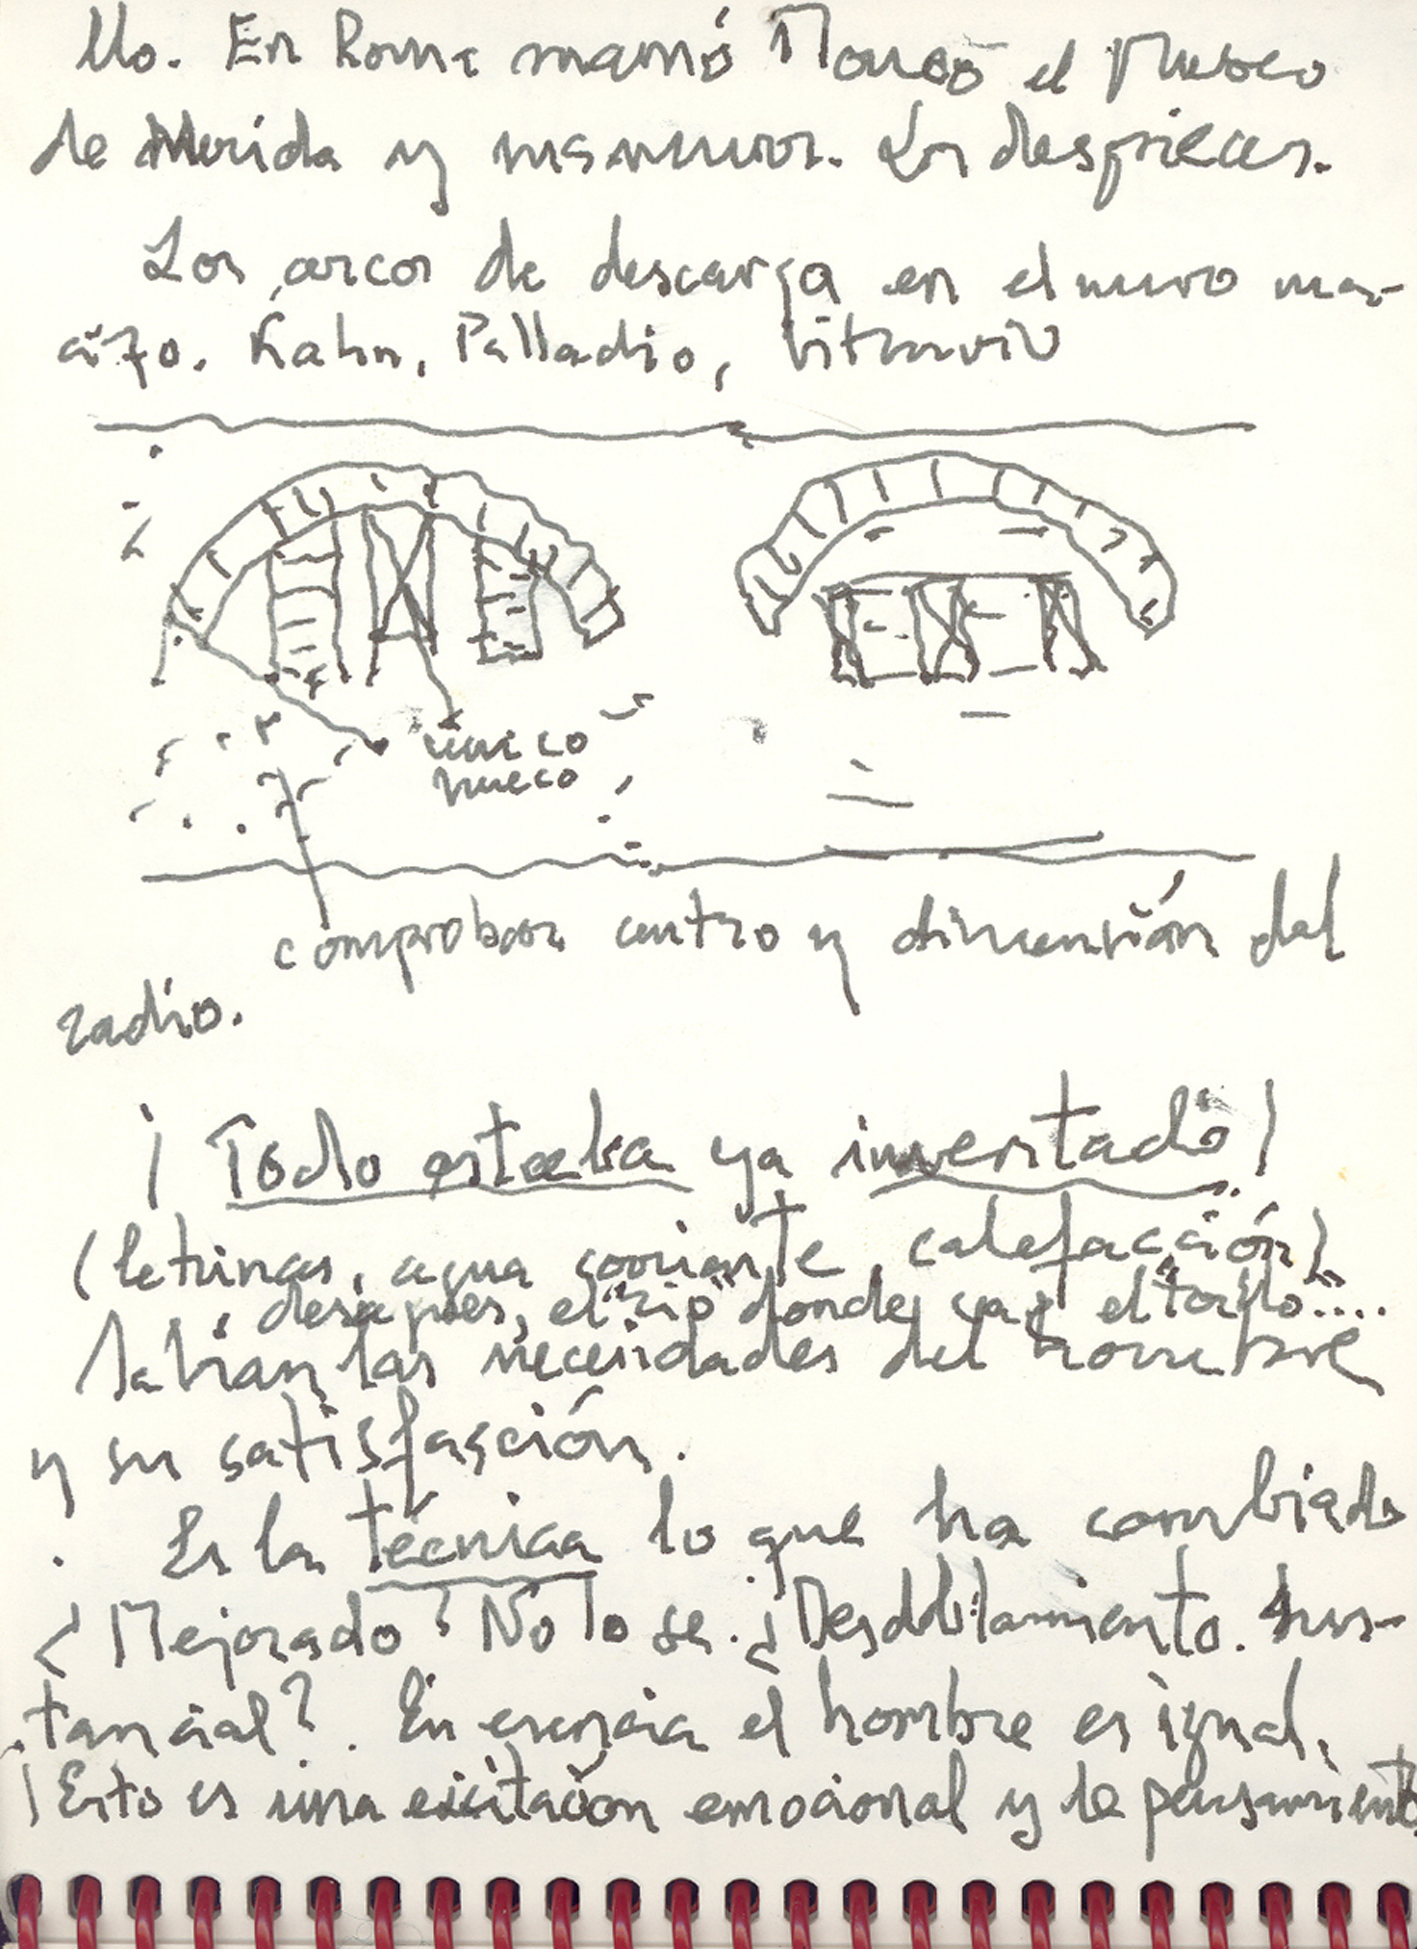 llo. En Roma mamó Moneo el Museo
de Merida y sus muros. Los despieces.
Los arcos de descarga en el muro ma-
cizo. Kahn, Palladio, Vitruvio
único
hueco
comprobar centro y dimensión del
radio.
¡Todo estaba ya inventado!
(letrinas, agua corriente, calefacción)
desagües, el "rio" donde cae el
Sabian las necesidades del hombre
y su satisfacción.
Es la técnica lo que ha cambiado
¿Mejorado? No lo se. ¿Desdoblamiento. Sus-
tancial?. En esencia el hombre es igual.
¡Esto es una excitación emocional y de pensamiento